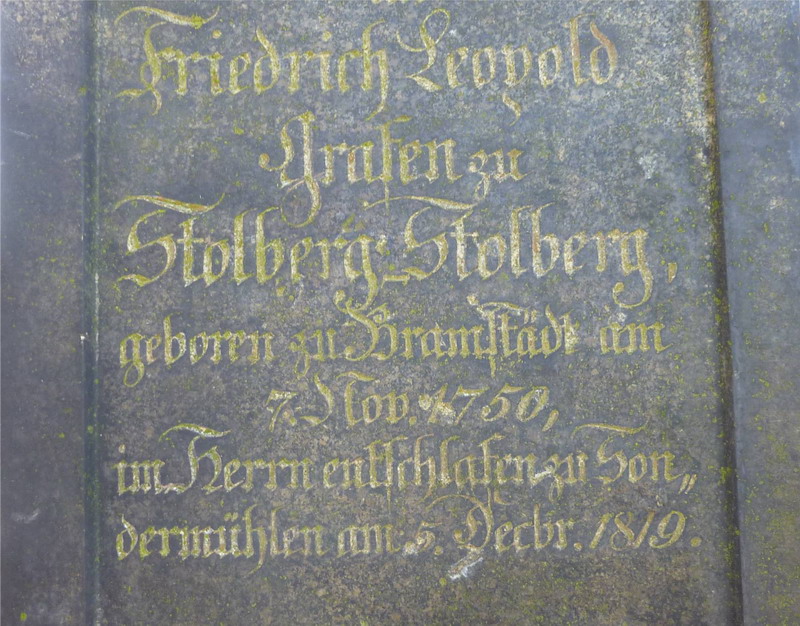 Friedrich Leopold
Grafen zu
Stolberg-Stolberg,
geboren zu Bramstädt am
7. Nov. 1750,
im Herrn entschlafen zu Son„
dermühlen am 5. Decbr. 1819.